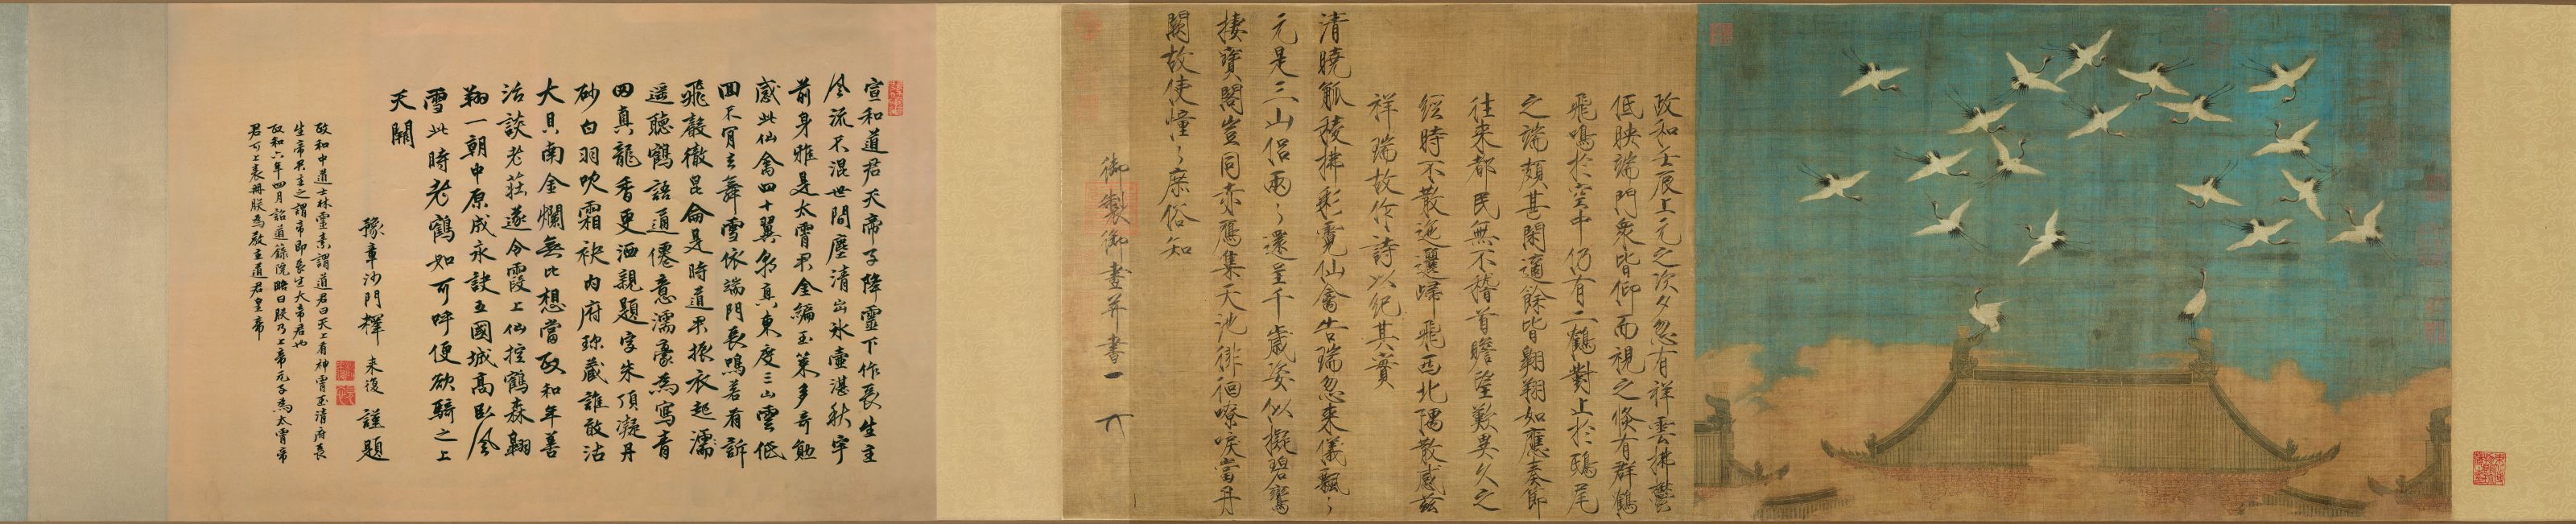 政和壬辰上元之次夕忽有祥雲拂鬱
低映端門衆皆仰而視之倏有群鶴
飛鳴於空中仍有二鶴對止於鴟尾
之端頗甚閑適餘皆翱翔如應奏節
往来都民無不稽首瞻望歎異久之
經時不散迤邐歸飛西北隅散感兹
祥瑞故作詩以紀其實
清曉觚稜拂彩霓仙禽告瑞忽来儀飄〻
元是三山侣兩〻還呈千歲姿似擬碧鸞
棲寶閣豈同赤鴈集天池徘徊嘹唳當丹
闕故使憧〻庶俗知
御製御畫并書
宣和道君天帝子降靈下作長生主
風流不混世間塵清出冰壺湛秋宇
前身雅是太霄君金編玉策多奇
感此仙禽四十翼朝真東度三山雲低
回不肯去舞雪依端門長鳴若有訴
飛聲徹昆侖是時道君振衣起
遥聽鶴語通僊意濡毫爲寫青
田真龍香更洒親題字朱頂凝丹
砂白羽吹霜袂内府珍藏誰敢沽
大貝南金爛無比想當政和年善
話談老莊遂令霞上仙控鶴森翱
翔一朝中原成永訣五國城高卧風
雪此時老鶴如可呼便欲騎之上
天闕
豫章沙門釋 来復 謹題
政和中道士林靈素謂道君曰天上有神霄玉清府長
生帝君主之謂帝即長生大帝君也
政和六年四月詔道籙院略曰朕乃上帝元子爲太霄帝
君可上表冊朕爲教主道君皇帝